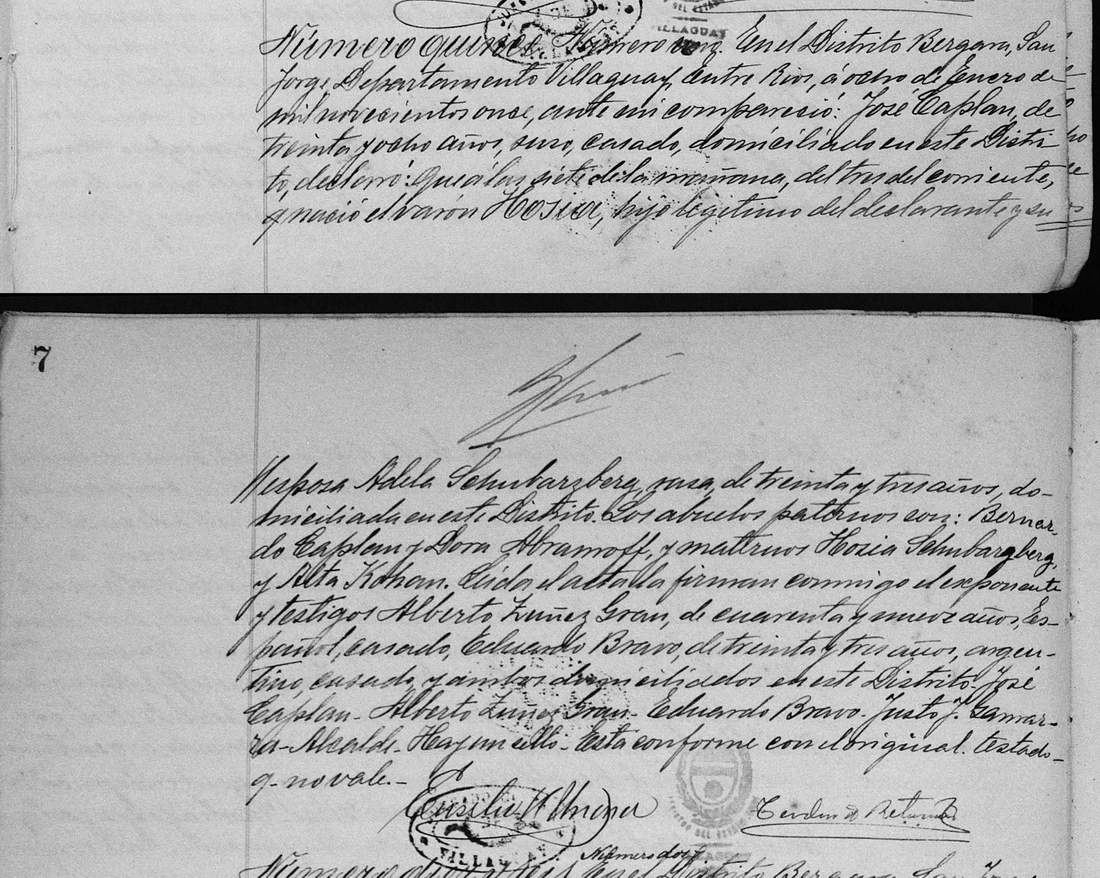 VILLAGUAY
Número quince Número uno. En el Distrito Bergara, San
Jorge, Departamento Villaguay, Entre Rios, á ocho de Enero de
mil novecientos once, ante mi compareció: José Caplan, de
treinta y ocho años, ruso, casado, domiciliado en este Distri-
to, declaró: Que a las siete de la mañana, del tres del corriente,
q nació el varón Hosier, hijo legitimo del declarante y su
7
esposa Adela Schwarzberg, rusa, de treinta y tres años, do-
miciliada en este Distrito. Los abuelos paternos son: Bernar-
do Caplan y Dora Abramoff, y maternos Hozia Schwarzberg,
y Alta Kohan. Leida el acta la firman conmigo el exponente
y testigos Alberto Zuñez Gran, de cuarenta y nueve años, Es-
pañol, casado, Eduardo Bravo, de treinta y tres años, argen-
tino, casado, y ambos domiciliados en este Distrito. José
Caplan - Alberto Zuñez Gran - Eduardo Bravo. Justo J. Gamar-
ra - Alcalde. Hay un sello. Esta conforme con el original. testado -
q - no vale. -
VILLAGUAY
Número En el Distrito Bergara, San